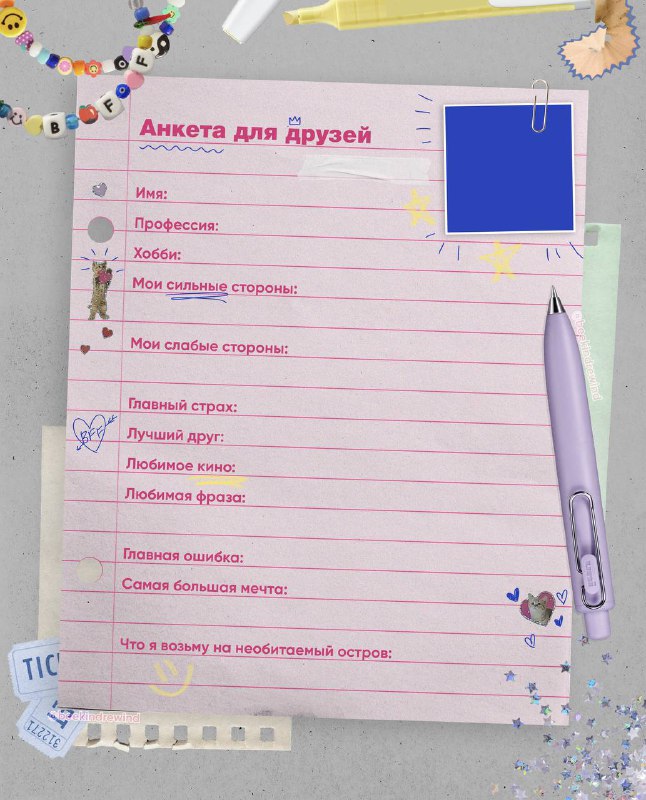 BFF
Анкета для друзей
Имя:
Профессия:
Хобби:
Мои сильные стороны:
Мои слабые стороны:
Главный страх:
BFF
Лучший друг:
Любимое кино:
Любимая фраза:
Главная ошибка:
Самая большая мечта:
Что я возьму на необитаемый остров:
TIC
@beekindrewind
@beekindrewind
312271